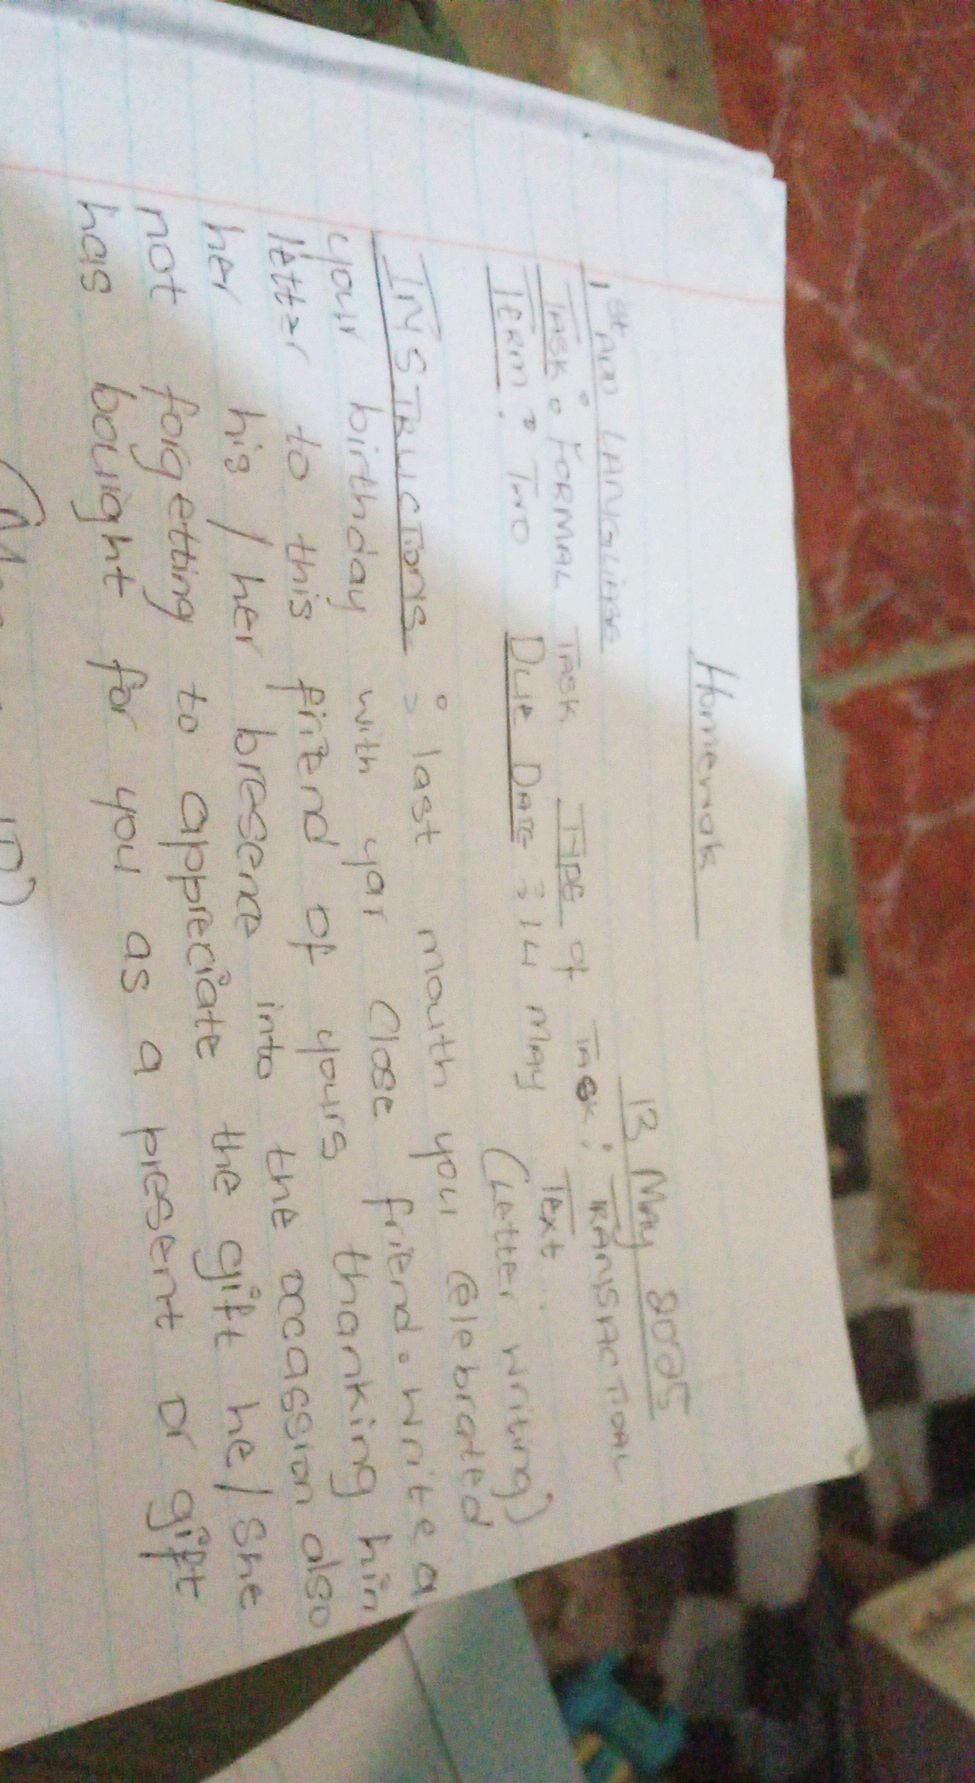 Homewok
13 May 2025
1st ADD LANGUAGE
TASK: FORMAL TASK TYPE of TASK: TRANSACTIONAL
TEXT
TERM: TWO DUE DATE: 14 MAY (Letter writing)
INSTRUCTIONS: last mouth you Celebrated
your birthday with yar Close friend. Write a
letter to this friend of yours thanking him
her his/her bresence into the occassion also
not forgetting to appreciate the gift he/she
has bought for you as a present or gift